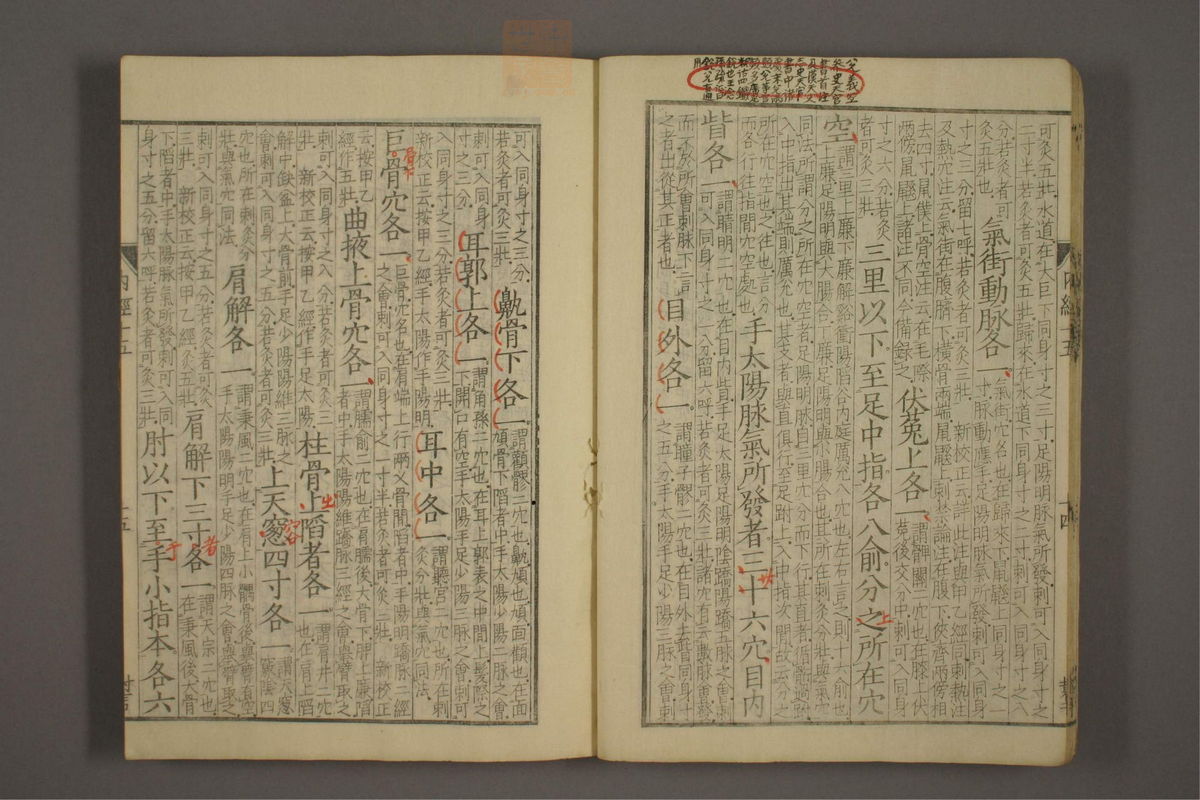 可灸五壯水道在大巨下同身寸之三寸足陽明脉氣所發刺可入同身寸之
二寸半若灸者可灸五壯歸來在水道下同身寸之二寸刺可入同身寸之八
分若灸者可
灸五壯也
氣街動脉各一
氣街穴名也在歸來下鼠鼷上同身寸之一
寸脉動應手足陽明脉氣所發刺可入同身
寸之三分留七呼若灸者可灸三壯 新校正云詳此注與甲乙經同刺熱注
及熱穴注云氣街在腹臍下橫骨兩端鼠鼷上刺禁論注在腹下俠齊兩傍相
去四寸鼠僕上骨空注云在毛際
兩傍鼠鼷上諸注不同今備録之
伏菟上各一
謂髀關二穴也在膝上伏
菟後交分中刺可入同身
寸之六分若灸
者可灸三壯
三里以下至足中指各八俞分之所在穴
空
謂三里上廉下廉解谿衝陽陷谷內庭厲兌八穴也左右言之則十六俞也
上廉足陽明與大腸合下廉足陽明與小腸合也其所在刺灸分壯與氣穴
同法所謂分之所在穴空者足陽明脉自三里穴分而下行其直者循過跗
入中指出其端則厲兌也其支者與直俱行至足跗上入中指次間故云分之
所在穴空也之往也言分
而各行往指間穴空處也
手太陽脉氣所發者三十六穴目內
眥各一
謂睛明二穴也在目內眥手足太陽足陽明陰蹻陽蹻五脉之會刺
可入同身寸之一分留六呼若灸者可灸三壯諸穴有云數脉會發
而不於所會刺脉下言
之者出從其正者也
目外各一
謂瞳子髎二穴也在目外去眥同身寸
之五分手太陽手足少陽三脉之會刺
內經十五
十四
可入同身寸之三分
若灸者可灸三壯
鼽骨下各一
謂顴髎二穴也鼽頄也頄面顴也在面
頄骨下陷者中手太陽少陽二脉之會
刺可入同身
寸之三分
耳郭上各一
謂角孫二穴也在耳上郭表之中間上髮際之
下開口有空手太陽手足少陽三脉之會刺可
入同身寸之三分若灸者可灸三壯
新校正云按甲乙經手太陽作手陽明
耳中各一
謂聽宮二穴也所在刺
灸分壯與氣穴同法
巨骨穴各一
骨下
巨骨穴名也在肩端上行兩叉骨間陷者中手陽明蹻脉二經
之會刺可入同身寸之一寸半若灸者可灸三壯 新校正
云按甲乙
經作五壯
曲掖上骨穴各一
謂臑俞二穴也在肩臑後大骨下胛上廉陷
者中手太陽陽維蹻脉三經之會舉臂取之
刺可入同身寸之八分若灸者可灸三
壯 新校正云按甲乙經作手足太陽
柱骨上陷者各一
出
謂肩井二穴
也在肩上陷
解中缺盆上大骨前手足少陽陽維三脉之
會刺可入同身寸之五分若灸者可灸三壯
上天窻四寸各一
容
謂天窻
竅陰四
穴也所在刺灸分
壯與氣穴同法
肩解各一
謂秉風二穴也在肩上小髃骨後舉臂有空
手太陽陽明手足少陽四脉之會舉臂取之
刺可入同身寸之五分若灸者可灸
三壯 新校正云按甲乙經灸五壯
肩解下三寸各一
者
謂天宗二穴也
在秉風後大骨
下陷者中手太陽脉氣所發刺可入同
身寸之五分留六呼若灸者可灸三壯
肘以下至手小指本各六
于
內經十五
十五